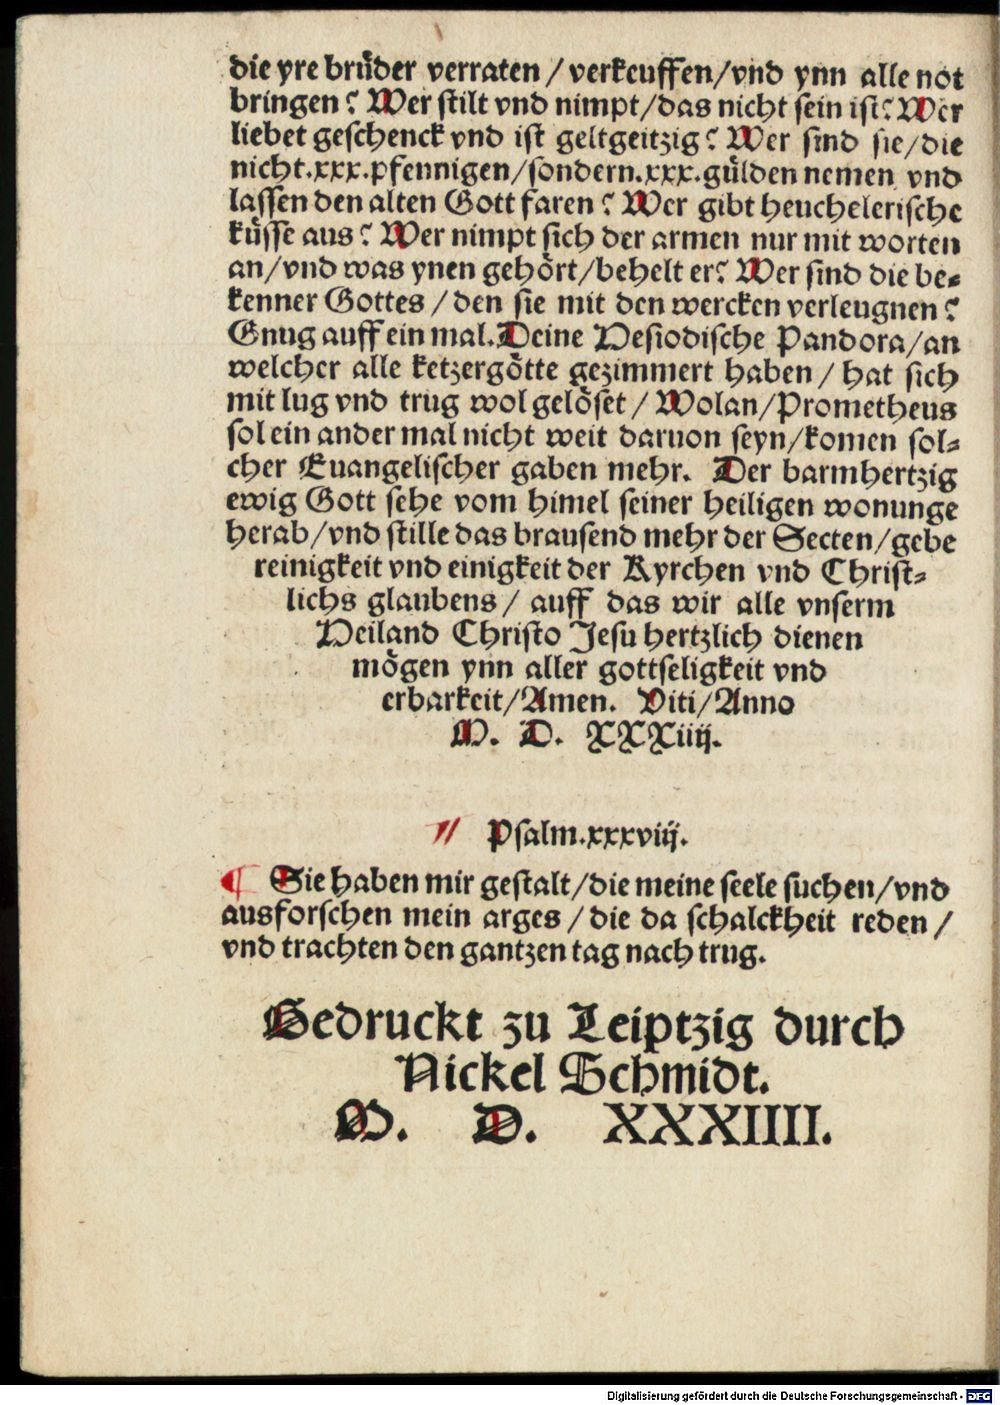 die yre brüder verraten / verkeuffen/vnd ynn alle not
bringen? Wer stilt vnd nimpt/das nicht sein ist? Wer
liebet geschenck vnd ist geltgeitzig? Wer sind sie/die
nicht.xxx.pfennigen/sondern.xxx.gülden nemen vnd
lassen den alten Gott faren? Wer gibt heuchelerische
küsse aus? Wer nimpt sich der armen nur mit worten
an/vnd was ynen gehört/behelt er? Wer sind die be-
kenner Gottes / den sie mit den wercken verleugnen?
Gnug auff ein mal. Deine Hesiodische Pandora/an
welcher alle ketzergötte gezimmert haben / hat sich
mit lug vnd trug wol gelöset / Wolan/Prometheus
sol ein ander mal nicht weit daruon seyn/komen sol-
cher Euangelischer gaben mehr. Der barmhertzig
ewig Gott sehe vom himel seiner heiligen wonunge
herab/vnd stille das brausend mehr der Secten/gebe
reinigkeit vnd einigkeit der Kyrchen vnd Christ-
lichs glaubens / auff das wir alle vnserm
Heiland Christo Jesu hertzlich dienen
mögen ynn aller gottseligkeit vnd
erbarkeit/Amen. Viti/Anno
M. D. XXXiiij.
Psalm.xxxviij.
¶ Sie haben mir gestalt/die meine seele suchen/vnd
ausforschen mein arges / die da schalckheit reden /
vnd trachten den gantzen tag nach trug.
Gedruckt zu Leiptzig durch
Nickel Schmidt.
M. D. XXXIIII.
Digitalisierung gefördert durch die Deutsche Forschungsgemeinschaft - DFG